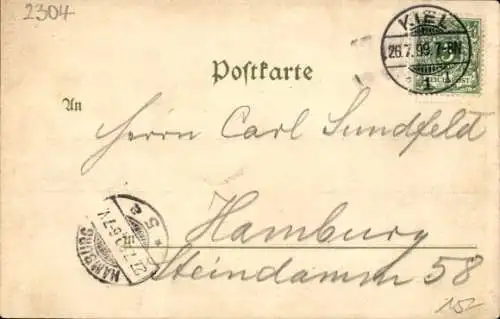 2304
KIEL
26.7.99.7-8N.
1 1
Postkarte
An
Herrn Carl Sundfeld
Hamburg
Steindamm 58
HAMBURG
5 a
152